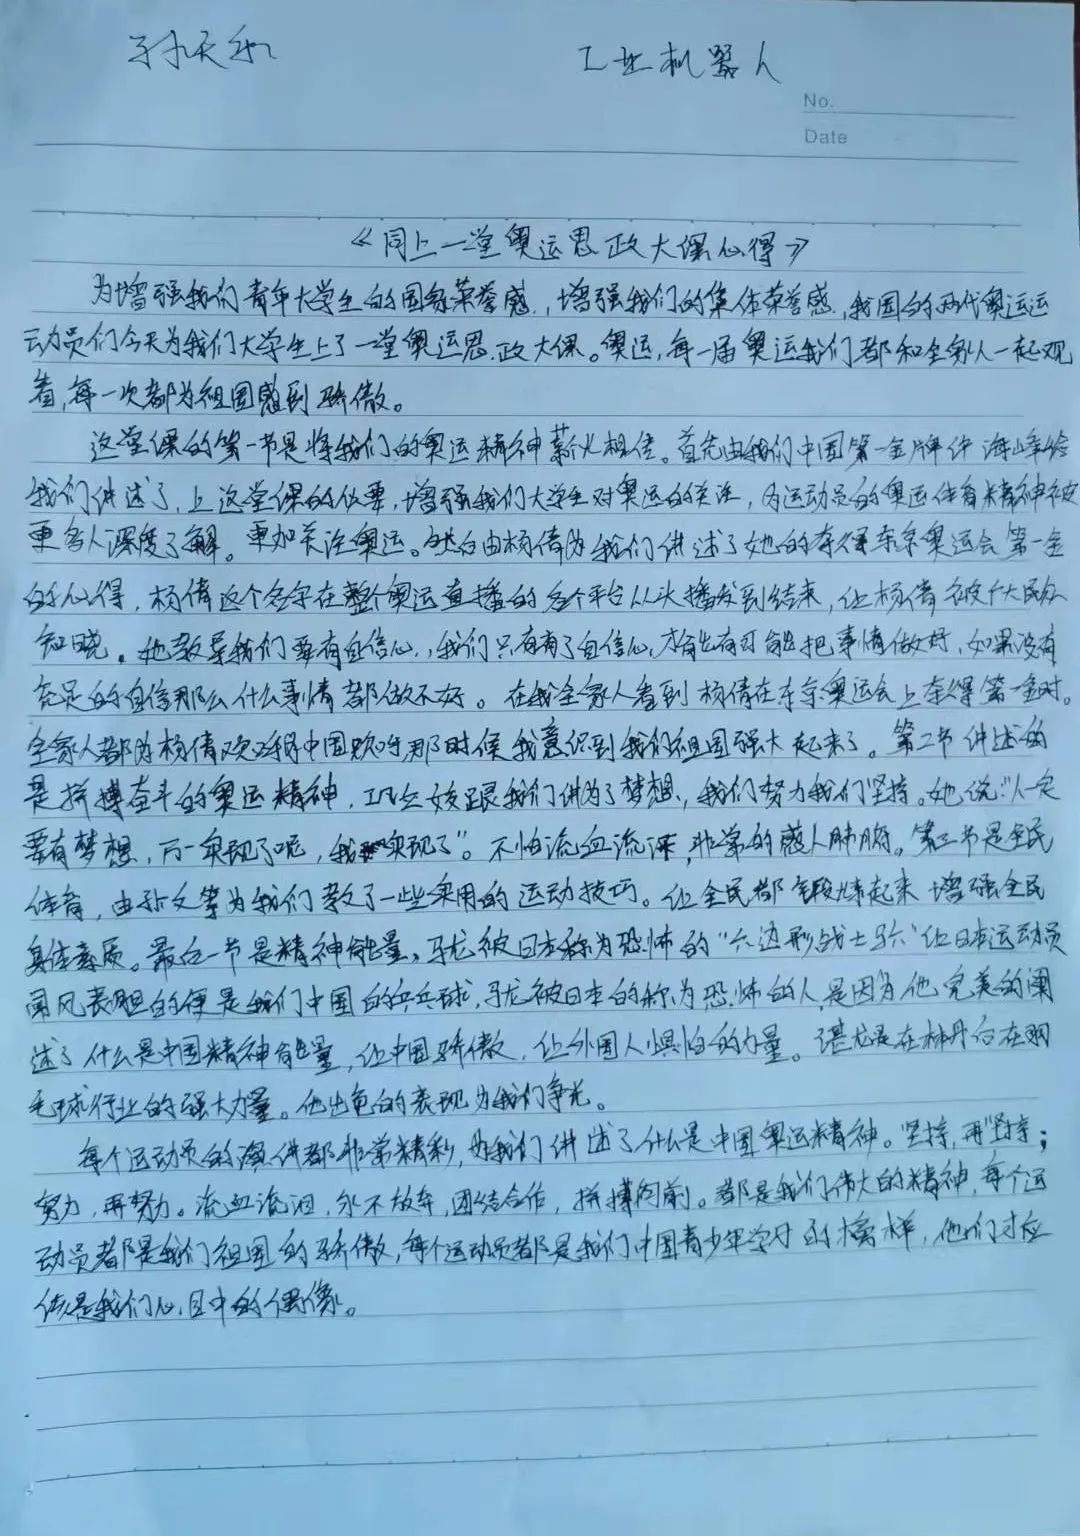 孙天和 工业机器人
No.
Date
《同上一堂奥运思政大课心得》
为增强我们青年大学生的国家荣誉感,增强我们的集体荣誉感,我国的两代奥运运
动员们今天为我们大学生上了一堂奥运思政大课。奥运,每一届奥运我们都和全家人一起观
看,每一次都为祖国感到骄傲。
这堂课的第一节是将我们的奥运精神薪火相传。首先由我们中国第一金牌许海峰给
我们讲述了,上这堂课的必要,增强我们大学生对奥运的关注,为运动员的奥运体育精神被
更多人深度了解。更加关注奥运。然后由杨倩为我们讲述了她的夺得东京奥运会第一金
的心得,杨倩这个名字在整个奥运直播的各个平台从火播发到结束,让杨倩被广大民众
知晓。她教导我们要有自信心,我们只有有了自信心,才能有可能把事情做好,如果没有
充足的自信那么什么事情都做不好。在我全家人看到杨倩在东京奥运会上夺得第一金时。
全家人都为杨倩欢呼为中国欢呼,那时候我意识到我们祖国强大起来了。第二节讲述的
是拼搏奋斗的奥运精神,巩立姣跟我们讲为了梦想,我们努力我们坚持。她说:“人一定
要有梦想,万一实现了呢,我实现了”。不怕流血流汗,非常的感人肺腑。第三节是全民
体育,由孙文等为我们教了一些实用的运动技巧。让全民都锻炼起来增强全民
身体素质。最后一节是精神能量,马龙被日本称为恐怖的“六边形战士马六”让日本运动员
闻风丧胆的便是我们中国的乒乓球,马龙被日本的称为恐怖的人,是因为他完美的阐
述了什么是中国精神能量,让中国骄傲,让外国人惧怕的力量。谌龙是在林丹后在羽
毛球行业的强大力量。他出色的表现为我们争光。
每个运动员的演讲都非常精彩,为我们讲述了什么是中国奥运精神。坚持,再坚持;
努力,再努力。流血流泪,永不放弃,团结合作,拼搏向前。都是我们伟大的精神,每个运
动员都是我们祖国的骄傲,每个运动员都是我们中国青少年学习的榜样,他们才应
该是我们心目中的偶像。